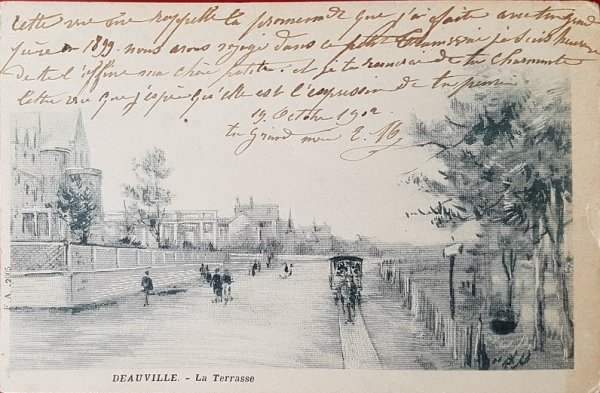 cette vue me rappelle la promenade que j'ai faite avec ton grand
père en 1899. nous avons voyagé dans ce petit tramway je suis heureuse
de te l'offrir ma chère petite. et je te remercie de ta charmante
lettre vu que j'espère qu'elle est l'expression de ta pensée
19 Octobre 1902
ta Grand mère E. M
F.A. 205
DEAUVILLE. - La Terrasse